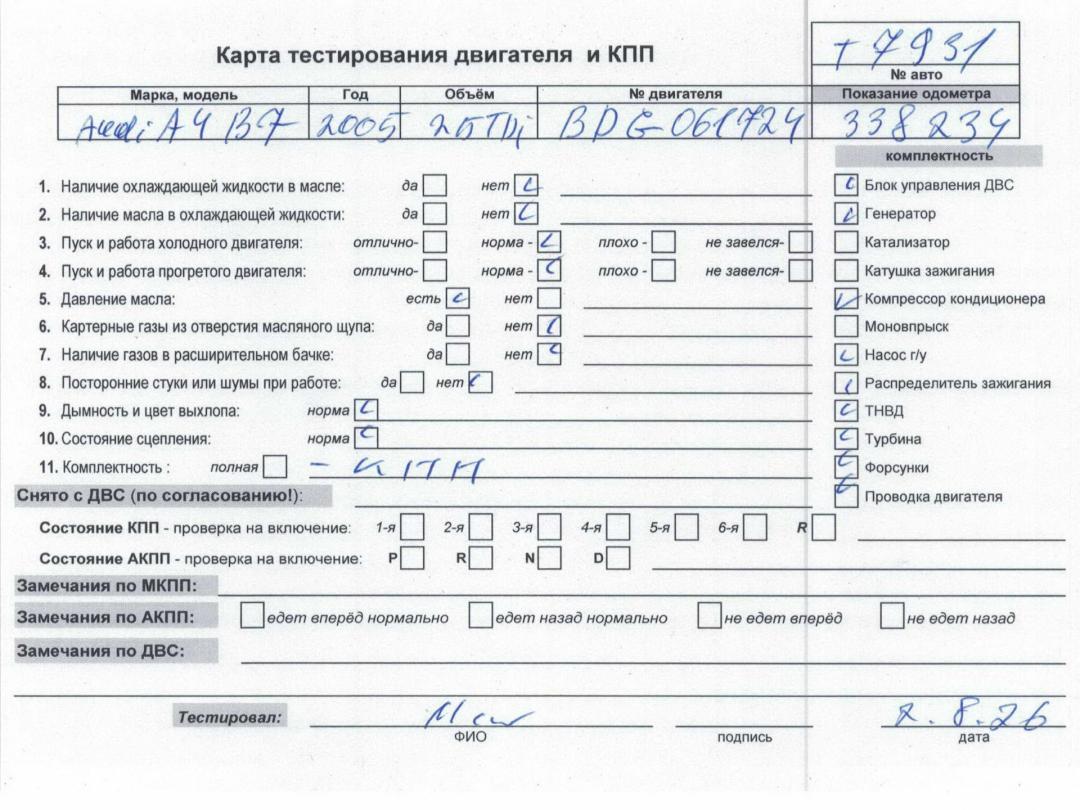 Карта тестирования двигателя и КПП
т 7931
№ авто
Марка, модель Год Объём № двигателя Показание одометра
Audi A4 B7 2005 25TDi BDG061724 338234
комплектность
1. Наличие охлаждающей жидкости в масле: да нет
Блок управления ДВС
2. Наличие масла в охлаждающей жидкости: да нет
Генератор
3. Пуск и работа холодного двигателя: отлично- норма - плохо - не завелся-
Катализатор
4. Пуск и работа прогретого двигателя: отлично- норма - плохо - не завелся-
Катушка зажигания
5. Давление масла: есть нет
Компрессор кондиционера
6. Картерные газы из отверстия масляного щупа: да нет
Моновпрыск
7. Наличие газов в расширительном бачке: да нет
Насос г/у
8. Посторонние стуки или шумы при работе: да нет
Распределитель зажигания
9. Дымность и цвет выхлопа: норма
ТНВД
10. Состояние сцепления: норма
Турбина
11. Комплектность : полная -
Форсунки
Снято с ДВС (по согласованию!):
Проводка двигателя
Состояние КПП - проверка на включение: 1-я 2-я 3-я 4-я 5-я 6-я R
Состояние АКПП - проверка на включение: P R N D
Замечания по МКПП:
Замечания по АКПП: едет вперёд нормально едет назад нормально не едет вперёд не едет назад
Замечания по ДВС:
Тестировал: 2.8.26
ФИО подпись дата